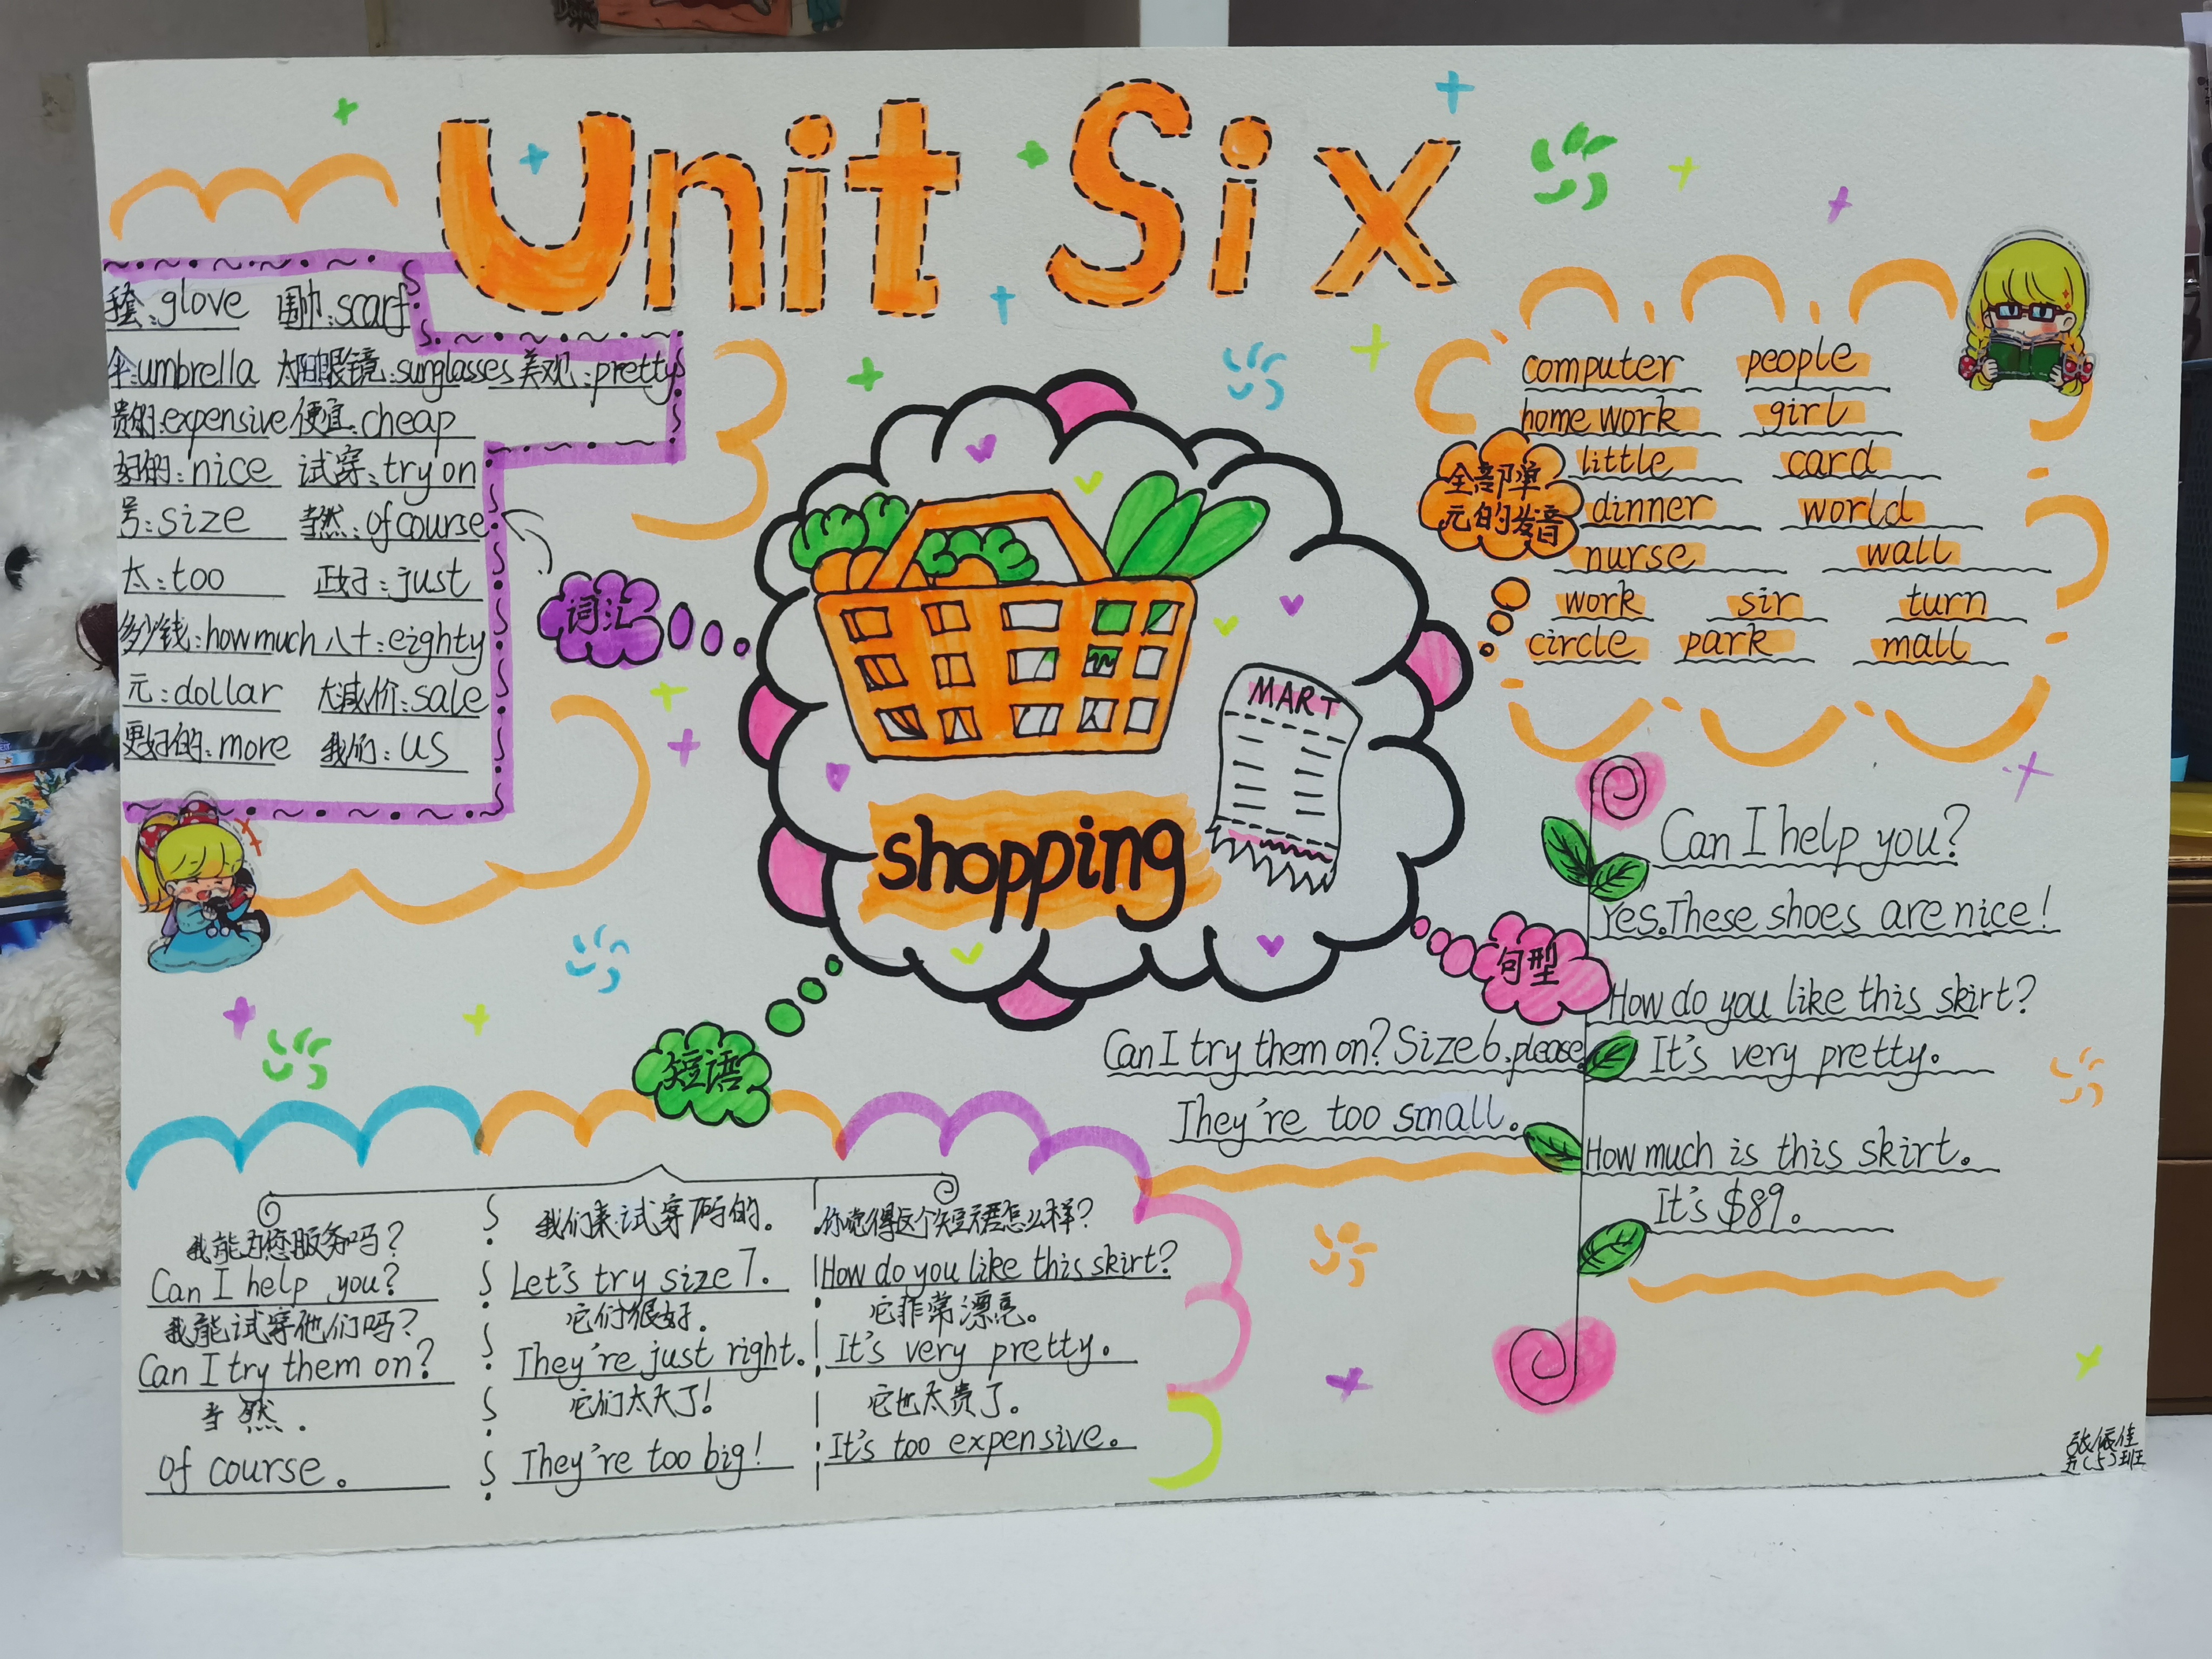 Unit Six
手套:glove 围巾:scarf
伞:umbrella 太阳眼镜:sunglasses 美观:pretty
贵的:expensive 便宜:cheap
好的:nice 试穿:try on
号:size 当然:of course
太:too 正好:just
多少钱:how much 八十:eighty
元:dollar 大减价:sale
更好的:more 我们:us
词汇
MART
shopping
computer people
home work girl
全部单
元的发音
little card
dinner world
nurse wall
work sir turn
circle park mall
句型
Can I help you?
Yes.These shoes are nice!
How do you like this skirt?
It's very pretty.
Can I try them on? Size 6, please
They're too small.
How much is this skirt.
It's $89.
短语
我能为您服务吗?
Can I help you?
我能试穿他们吗?
Can I try them on?
当然.
of course.
我们来试穿7码的.
Let's try size 7.
它们很好.
They're just right.
它们太大了!
They're too big!
你觉得这个短裙怎么样?
How do you like this skirt?
它非常漂亮。
It's very pretty.
它也太贵了。
It's too expensive.
五(5)班